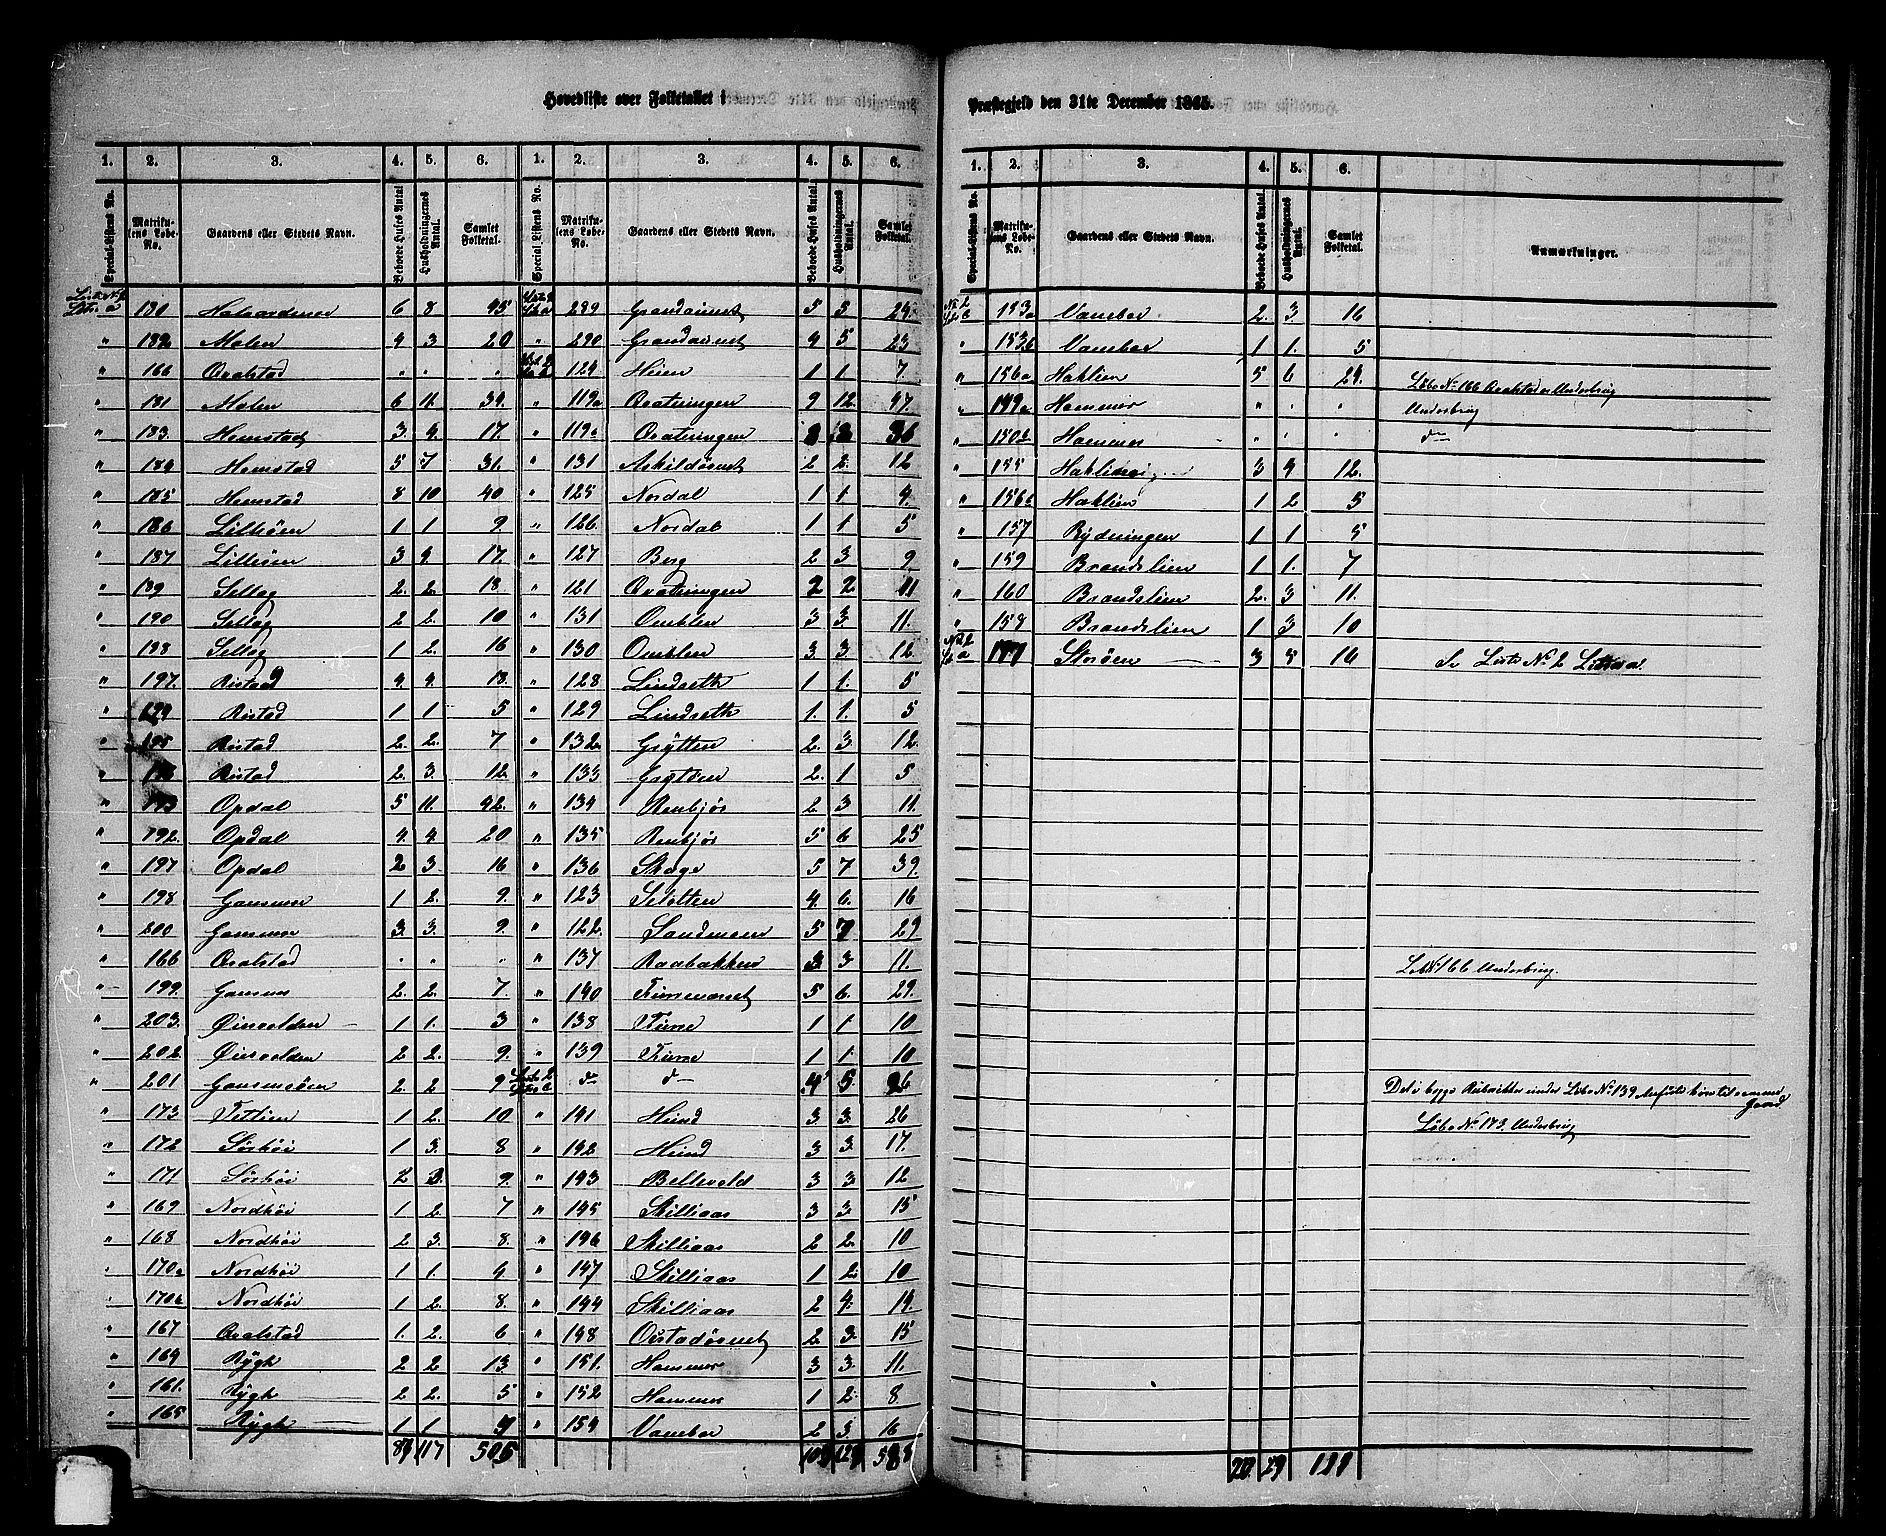 Hovedliste over Folketallet i
Præstegjeld den 31te December 1865.
1. 2. 3. 4. 5. 6. 1. 2. 3. 4. 5. 6.
Special-Listens No. Matrikulens Løbe-No. Gaardens eller Stedets Navn. Beboede Huses Antal. Husholdningernes Antal. Samlet Folketal. Special-Listens No. Matrikulens Løbe-No. Gaardens eller Stedets Navn. Beboede Huses Antal. Husholdningernes Antal. Samlet Folketal.
180 6 8 45 289 Grandaunet 5 5
" 182 Moen 4 3 20 " 290 Grandaunet 4 5 23
" 166 Qvalstad " " " 124 Heien 1 1 7
" 181 Moen 6 11. 34. " 119a Qvatningen 9 12 47.
" 183. Homstad 3. 4. 17. " Qvatningen 36
" 184 Homstad 5 7 31. " 131 2 2. 12
" 185 Homstad 8 10 40 " 125 Nordal 1 1. 4.
" 186 Lilleøen 1 1 9. " 126. Nordal 1 1. 5
" 187 Lilleøen 3 4. 17. " 127 Berg 2 3 9
" 189 Sellæg 2. 2. 18. " 121 Qvatningen 2 2. 11
" 190 Sellæg 2 2. 10 " 131 Omblen 3 3. 11.
" 188 Sellæg 1 2. 16 " 130 Omblen 3 3. 12
" 197. Ristad 4. 4. 18. " 128 Lindseth 1 1. 5
" Ristad 1 1 5 " 129 Lindseth 1. 1. 5
" 195 Ristad 2. 2. 7 " 132. Grytten 2. 3. 12.
" Ristad 2. 3. 12. " 133 Grytten 2. 1 5
" 193 Opdal 5 11. 42. " 134 Rembjør 2. 3 11.
" 192. Opdal 4. 4. 20 " 135 Rembjør 5 6 25
" 197 Opdal 2 3. 16 " 136 Skage 5 7 39.
" 198 Gansmoe 1 2. 9. " 123 4. 6. 16
" 200 Gansmoe 3. 3. 9. " 122. Sandmoen 5 7 29
" 166 Qvalstad . . . " 137 Raabakken 3 3 11.
" 199. Gansmoe 2. 2. 7. " 140 5 6. 29.
" 203. Øisvolden 1 1. 3 " 138 1 1. 10
" 202. Øisvolden 2 2. 9. " 139 1 1. 10
" 201 Gansmoøen 2. 2 9 d— d— 4 5. 26
" 173 Tetlien 1 2. 10 " 141 Hund 3. 3. 26
" 172 Sørhøi 1 3. 8 " 142 Hund 3 3. 17.
" 171 Sørhøi 2 3 9. " 143 Bellevold 3 3 12
" 169 Nordhøi 1 2. 7 " 145 Skilliaas 3 3. 15
" 168 Nordhøi 2 3. 8. " 146 Skilliaas 2 2. 10
" 170a Nordhøi 1 1. 4 " 147 Skilliaas 1 2. 10
" 170b Nordhøi 1 2. 8. " 144 Skilliaas 2 4. 14.
" 167 Qvalstad 1. 2. 6 " 148 2. 3. 15
" 164 Rygh 2 2 13. " 151. Hammer 3 3. 11.
" 161. Rygh 2 2. 5 " 152 Hammer 1 2. 8
" 165 Rygh 1 1 " 154 Vanebo 2 3. 16
117 506
1. 2. 3. 4. 5. 6.
Special-Listens No. Matrikulens Løbe-No. Gaardens eller Stedets Navn. Beboede Huses Antal. Husholdningernes Antal. Samlet Folketal. Anmærkninger.
153a Vanebo 2. 3. 16
" 153b Vanebo 1 1. 5
" 156a Haklien 5 6 24. Løbe No 166 Qvalstad er Underbrug
" 149a Hammer " . " Underbrug
" 150b Hammer " . . d—
" 155 3 4 12.
" 156b Haklien 1 2 5
" 157 Rydningen 1 1 5
" 159 Brandslien 1 1. 7
" 160 Brandslien 2. 3 11.
" 158 Brandslien 1 3 10
177 Storøen 3 5 16 Se Liste No. 2 Littra a.
Løb. No 166 Underbrug.
Løbe No 173. Underbrug
20 29